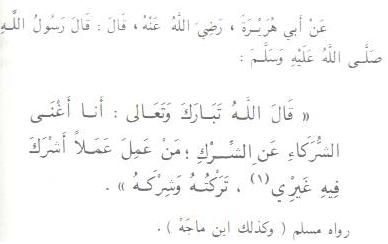 عَنْ أَبي هُرَيْرَةَ ، رَضِيَ اللَّهُ عَنْهُ ، قَالَ : قَالَ رَسُولُ اللَّهِ
صَلَّى اللَّهُ عَلَيْهِ وَسَلَّمَ :
« قَالَ اللَّهُ تَبَارَكَ وَتَعَالى : أَنَا أَغْنَى
الشُّرَكَاءِ عَنِ الشِّرْكِ ؛ مَنْ عَمِلَ عَمَلاً أَشْرَكَ
فِيهِ غَيْرِي (١) ، تَرَكْتُهُ وَشِرْكَهُ » .
رواه مسلم ( وكذلك ابن ماجَهْ ) .